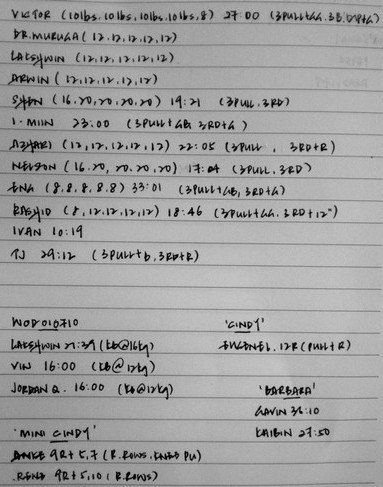 VICTOR (10lbs.10lbs.10lbs.10lbs.8) 27:00 (3PULL+GG.3B.
DR.MURUGA (12.12.12.12.12)
LAKSHWIN (12.12.12.12.12)
ARWIN (12.12.12.12.12)
SHEN (16.20.20.20.20) 19:21 (3PULL.3RD)
I-MIIN 23:00 (3PULL+GB. 3RD+G)
AZHARI (12.12.12.12.12) 22:05 (3PULL , 3RD+R)
NELSON (16.20.20.20.20) 17:04 (3PULL.3RD)
ENG (8.8.8.8.8) 33:01 (3PULL+GB, 3RD+G)
RASHID (8.12.12.12.12) 18:46 (3PULL+GG.3RD+12")
IVAN 10:19
TJ 29:12 (3PULL+b, 3RD+R)
WOD 010710
'CINDY'
LAKSHWIN 21:39 (kb@16kg)
12R (PULL+R)
VIN 16:00 (kb@12kg)
JORDAN Q. 16:00 (kb@12kg)
'BARBARA'
GAVIN 36:10
'MINI CINDY'
KAIBIN 27:50
9R+5,7 (R.ROWS, KNEE PU)
RENE 9R+5,10 (R.ROWS)